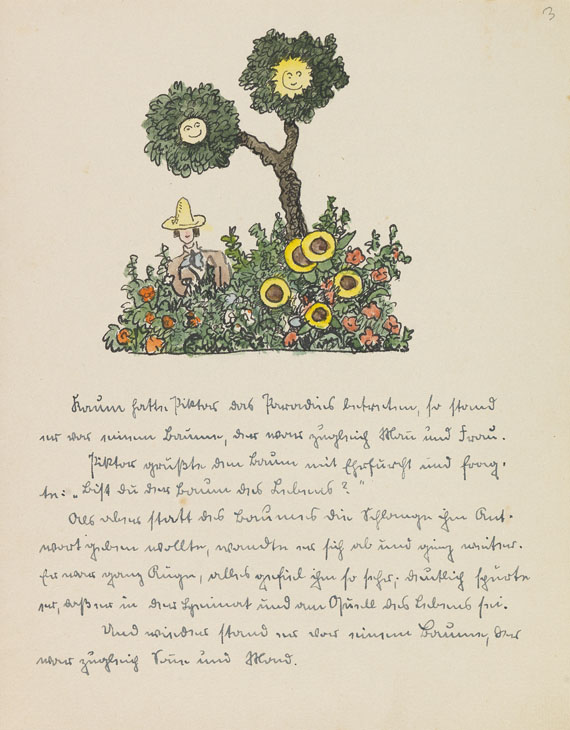 3
Kaum hatte Piktor das Paradies betreten, so stand
er vor einem Baume, der war zugleich Mann und Frau.
Piktor grüßte den Baum mit Ehrfurcht und frag-
te: „Bist du der Baum des Lebens?"
Als aber statt des Baumes die Schlange ihm Ant-
wort geben wollte, wandte er sich ab und ging weiter.
Er war ganz Auge, alles gefiel ihm so sehr; deutlich spürte
er, daß er in der Heimat und am Quell des Lebens sei.
Und wieder stand er vor einem Baume, der
war zugleich Sonne und Mond.